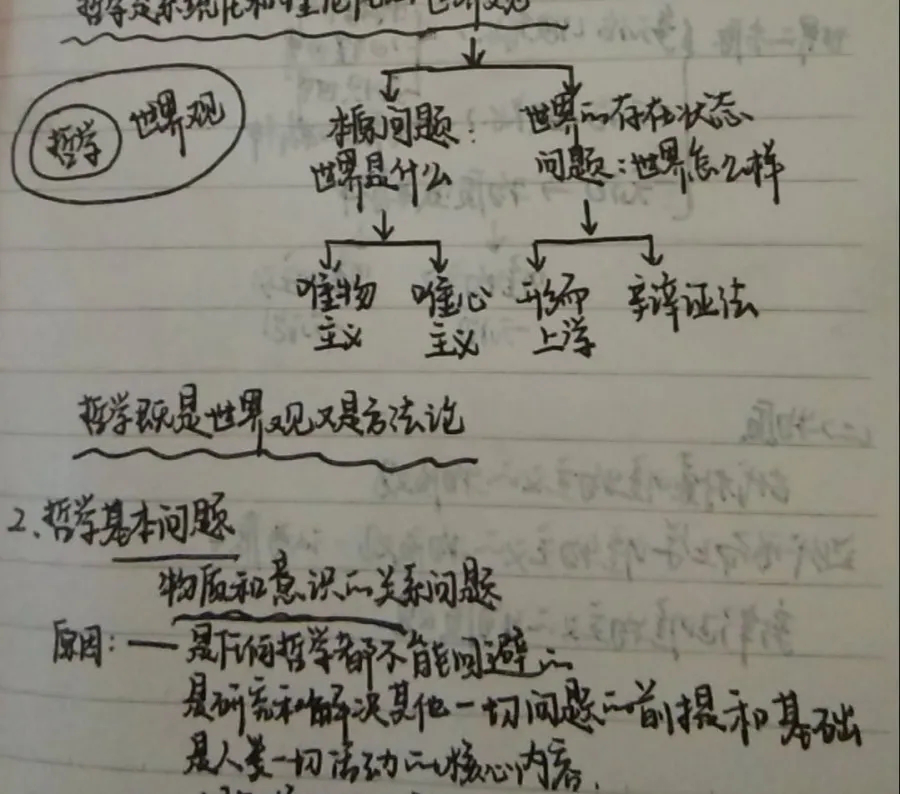 哲学是系统化和理论化的世界观
哲学 世界观
本原问题： 世界的存在状态
世界是什么 问题：世界怎么样
唯物 唯心 形而 辩证法
主义 主义 上学
哲学既是世界观又是方法论
2、哲学基本问题
物质和意识的关系问题
原因：— 是任何哲学都不能回避的
是研究和解决其他一切问题的前提和基础
是人类一切活动的核心内容.